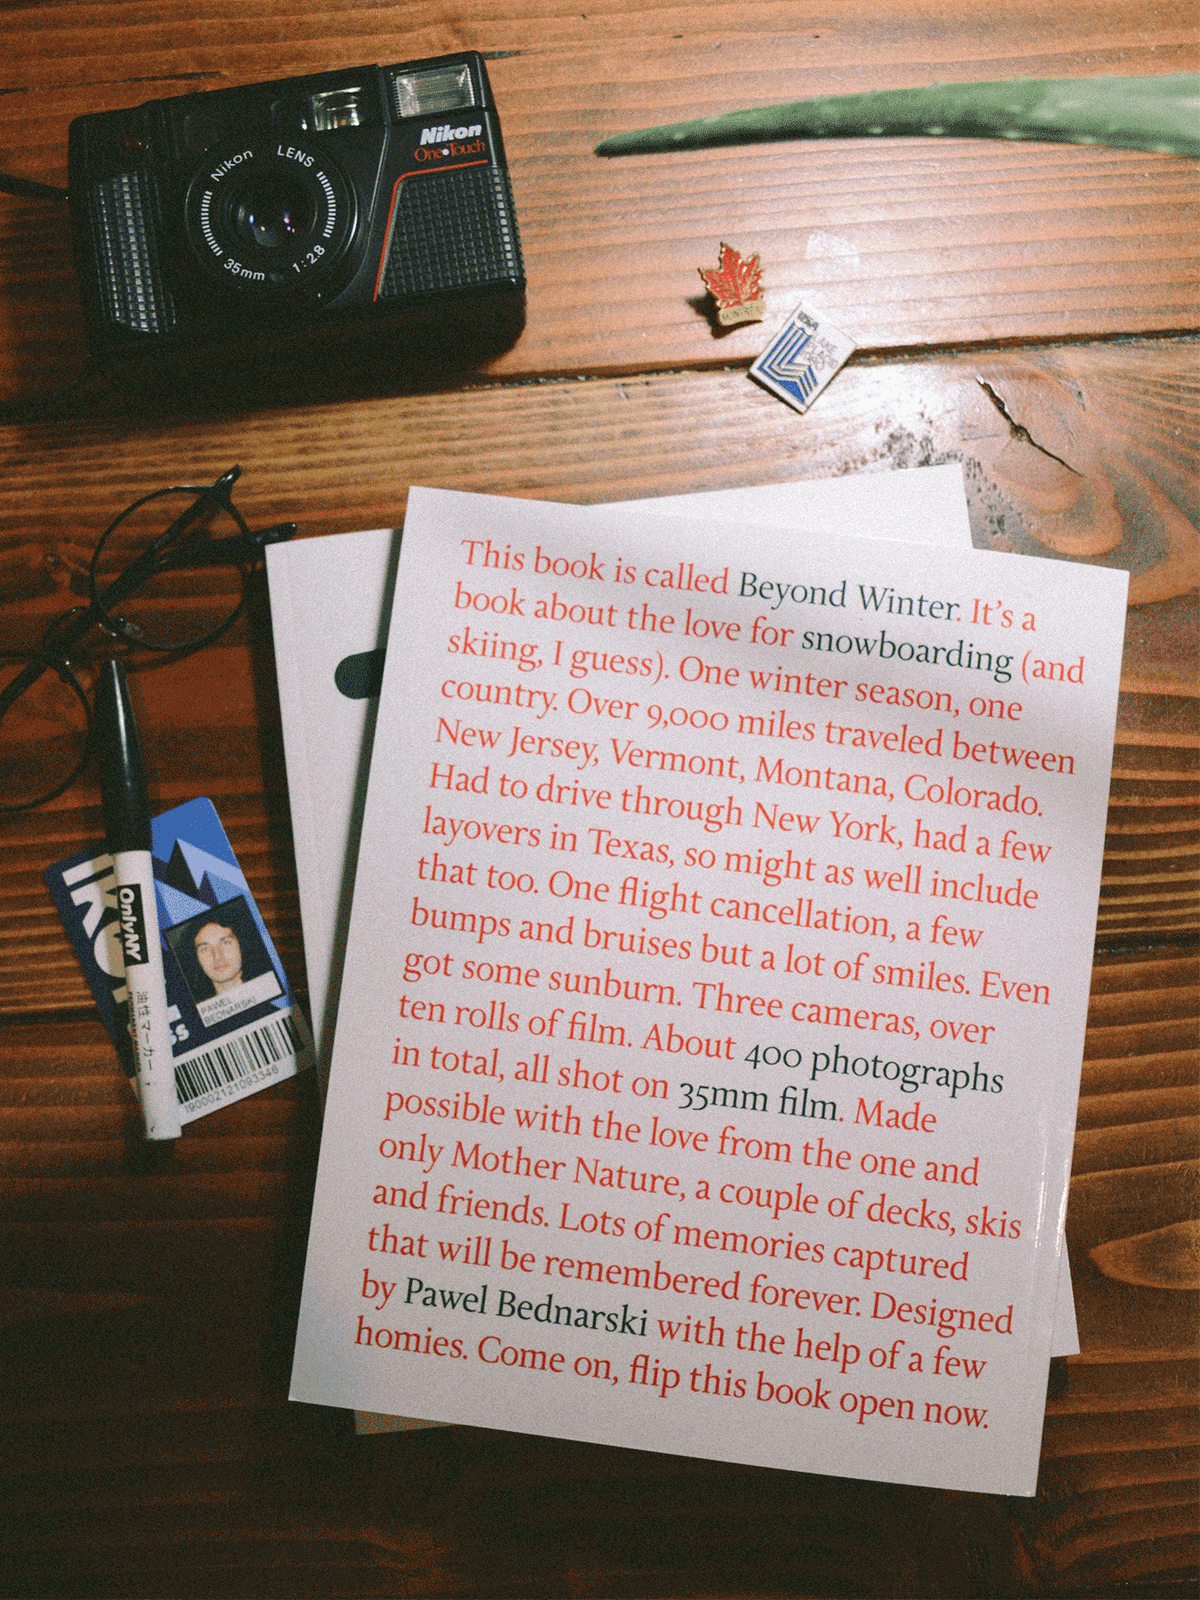 Nikon
One•Touch
Nikon LENS
35mm 1:2.8
USA
LAKE
This book is called Beyond Winter. It’s a
book about the love for snowboarding (and
skiing, I guess). One winter season, one
country. Over 9,000 miles traveled between
New Jersey, Vermont, Montana, Colorado.
Had to drive through New York, had a few
layovers in Texas, so might as well include
that too. One flight cancellation, a few
bumps and bruises but a lot of smiles. Even
got some sunburn. Three cameras, over
ten rolls of film. About 400 photographs
in total, all shot on 35mm film. Made
possible with the love from the one and
only Mother Nature, a couple of decks, skis
and friends. Lots of memories captured
that will be remembered forever. Designed
by Pawel Bednarski with the help of a few
homies. Come on, flip this book open now.
IKO
ss
OnlyNY
油性マーカー
PAWEL
BEDNARSKI
I90002121093346